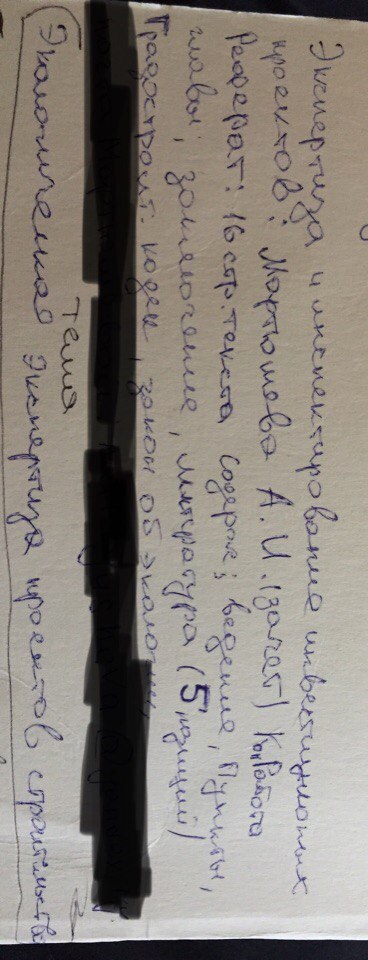 Экспертиза и инспектирование инвестиционных
проектов: Мартюшева А.И. (зачет) К.Работа
Реферат: 16 стр. текста содерж; ведение, Пункты,
главы, заключение, литература (5 позиций)
Градостроит. кодекс, закон об экологии,
Тема
Экологическая Экспертиза проектов строительства